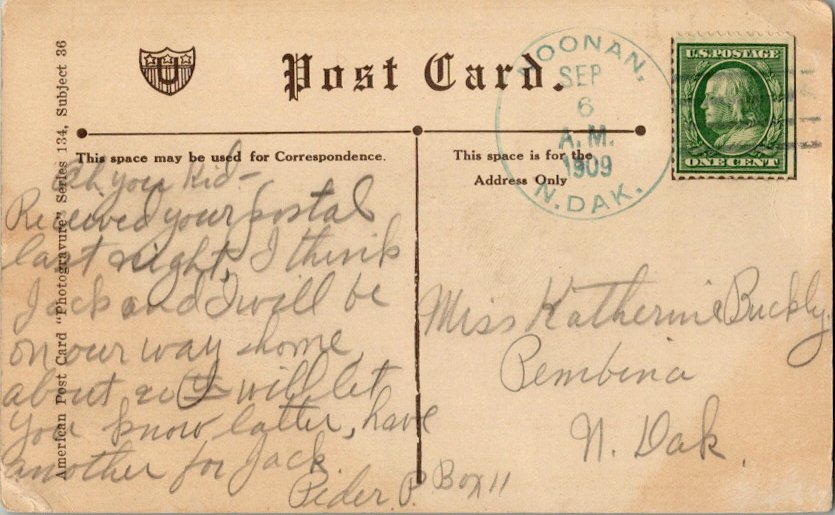 Post Card.
American Post Card "Photogravure" Series 134, Subject 36
This space may be used for Correspondence.
This space is for the
Address Only
NOONAN,
SEP
6
A.M.
1909
N. DAK.
U.S. POSTAGE
ONE CENT
U
Oh you Kid-
Received your postal
last night, I think
Jack and I will be
on our way home
about 20 will let
you know latter, have
another for Jack
Peder P. Box 11
Miss Katherine Buckly.
Pembina
N. Dak.